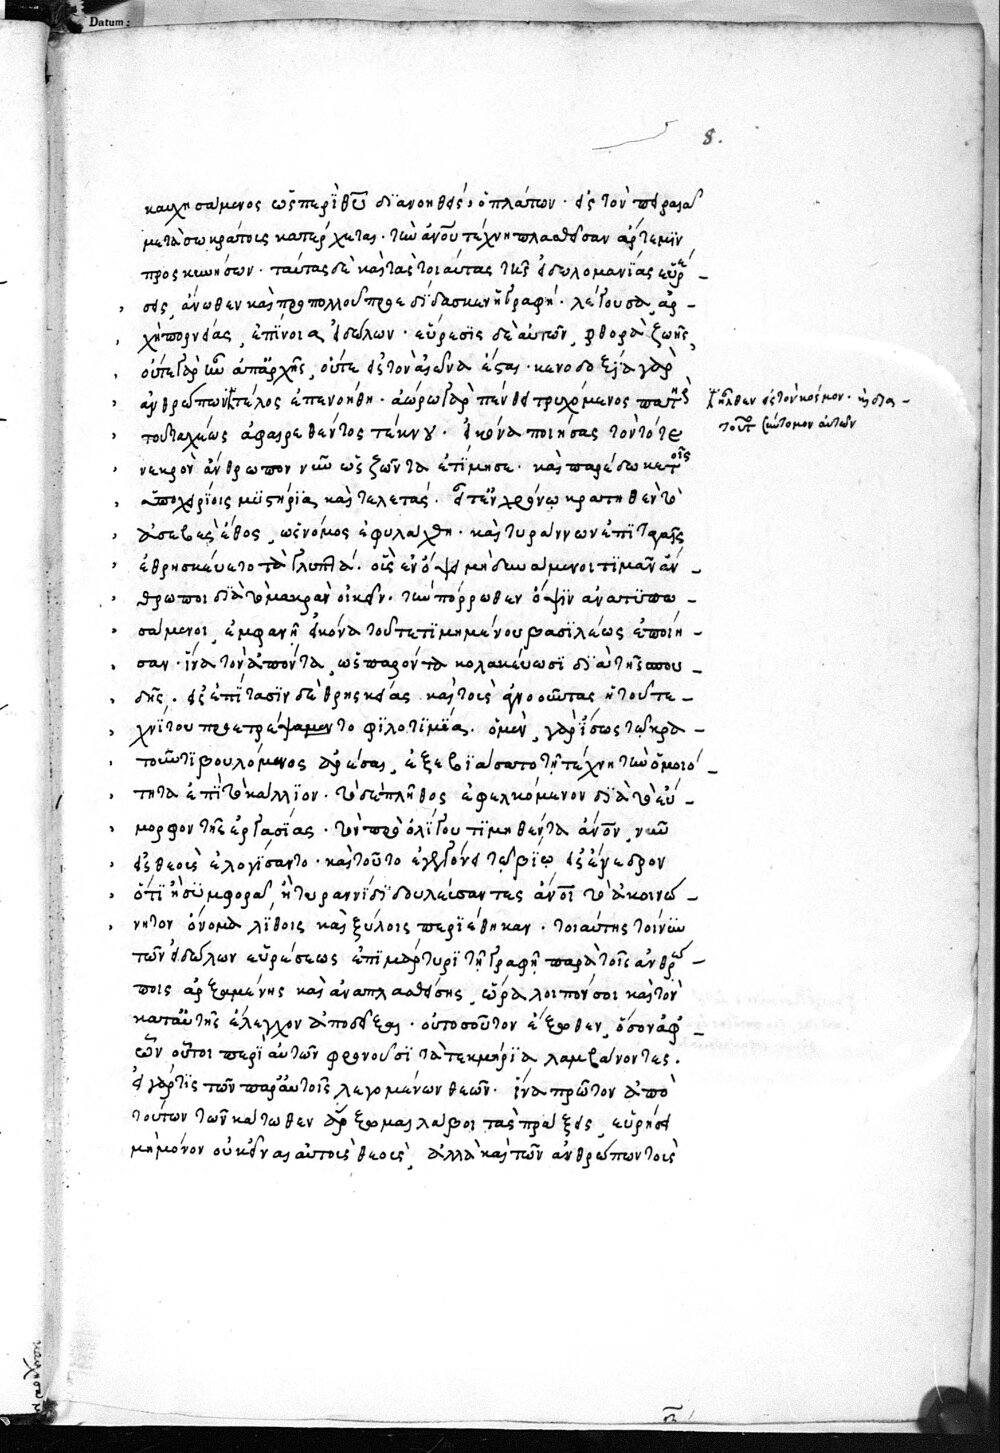 Datum:
8.
καυχησάμενος ὡς περὶ θεοῦ διανοηθείς, ὁ πλάτων· εἰς τὸν πειραιᾶ
μετὰ σωκράτους κατέρχεται· τὴν ἀνου τέχνη πλασθεῖσαν ἄρτεμιν
προσκυνήσων· ταύτας δὲ καὶ τὰς τοιαύτας τῆς εἰδωλομανίας εὑρέ-
σεις, ἄνωθεν καὶ πρὸ πολλοῦ προεδίδασκεν ἡ γραφή· λέγουσα, ἀρ-
χὴ πορνείας, ἐπίνοια εἰδώλων· εὕρεσις δὲ αὐτῶν, φθορὰ ζωῆς,
οὔτε γὰρ ἦν ἀπαρχῆς, οὔτε εἰς τὸν αἰῶνα ἔσται· κενοδοξία γὰρ
ἀνθρώπων τέλος ἐπενοήθη· ἀώρω γὰρ πένθει τρυχόμενος πατὴρ
εἰσῆλθεν εἰς τὸν κόσμον· καὶ διὰ-
τοῦτο σύντομον αὐτῶν
τοῦ ταχέως ἀφαιρεθέντος τέκνου· εἰκόνα ποιήσας τὸν τότε
νεκρὸν ἄνθρωπον νῦν ὡς ζῶντα ἐτίμησε· καὶ παρέδωκε τοῖς
ὑποχειρίοις μυστήρια καὶ τελετάς· εἶτ' ἐν χρόνω κρατηθὲν τὸ
ἀσεβὲς ἔθος, ὡς νόμος ἐφυλάχθη· καὶ τυράννων ἐπιταγαῖς
ἐθρησκεύετο τὰ γλυπτά· οὓς ἐν ὄψει μὴ δυνάμενοι τιμᾶν ἄν-
θρωποι διὰ τὸ μακρὰν οἰκεῖν· τὴν πόρρωθεν ὄψιν ἀνατυπω-
σάμενοι, ἐμφανῆ εἰκόνα τοῦ τετιμημένου βασιλέως ἐποίη-
σαν· ἵνα τὸν ἀπόντα, ὡς παρόντα κολακεύωσι διὰ τῆς σπου-
δῆς· εἰς ἐπίτασιν δὲ θρησκείας καὶ τοὺς ἀγνοοῦντας ἡ τοῦ τε-
χνίτου προετρέψαμεντο φιλοτιμία· ὁ μὲν, γὰρ ἴσως τῷ κρα-
τοῦντι βουλόμενος ἀρέσαι, ἐξεβιάσατο τῆ τέχνη τὴν ὁμοιό-
τητα ἐπὶ τὸ κάλλιον· τὸ δὲ πλῆθος ἐφελκόμενον διὰ τὸ εὔ-
μορφον τῆς ἐργασίας· τὸν πρὸ ὀλίγου τιμηθέντα ἀνον, νῦν
εἰς θεοὺς ἐλογίσαντο· καὶ τοῦτο ἐγένετο τῷ βίω εἰς ἔνεδρον
ὅτι ἢ συμφορᾶ, ἢ τυραννίδι δουλεύσαντες ἀνοι τὸ ἀκοινώ-
νητον ὄνομα λίθοις καὶ ξύλοις περιέθηκαν· τοιαύτης τοίνυν
τῶν εἰδώλων εὑρέσεως ἐπὶ μάρτυρι τῆ γραφῆ παρὰ τοῖς ἀνθρώ-
ποις ἀρξαμένης καὶ ἀναπλασθείσης, ὥρα λοιπόν σοι καὶ τὸν
κατ' αὐτῆς ἔλεγχον ἀποδεῖξαι· οὐ τοσοῦτον ἔξωθεν, ὅσον ἀφ'
ὧν οὗτοι περὶ αὐτῶν φρονοῦσι τὰ τεκμήρια λαμβάνοντες.
εἰ γάρ τις τῶν παρ' αὐτοῖς λεγομένων θεῶν· ἵνα πρῶτον ἀπὸ
τούτων τῶν κάτωθεν ἄρξωμαι λάβοι τὰς πράξεις, εὑρήσει
μὴ μόνον οὐκ εἶναι αὐτοὺς θεοὺς, ἀλλὰ καὶ τῶν ἀνθρώπων τοὺς